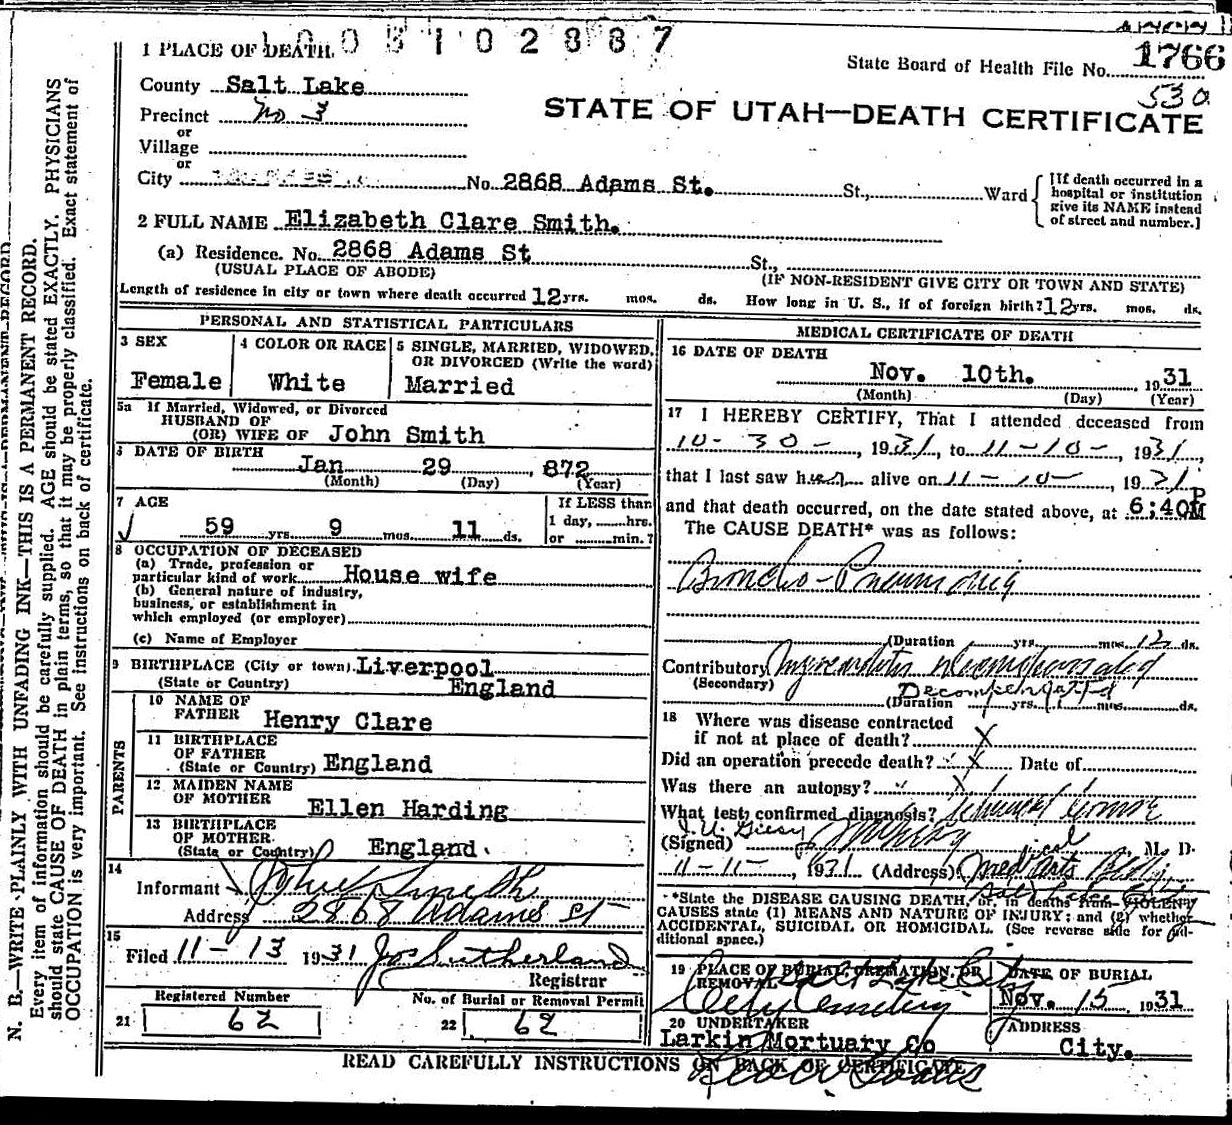 1003102887
1 PLACE OF DEATH
State Board of Health File No. 1766
530
County Salt Lake
STATE OF UTAH—DEATH CERTIFICATE
Precinct No 3
or
Village
or
City No. 2868 Adams St. St., Ward
[If death occurred in a
hospital or institution
give its NAME instead
of street and number.]
2 FULL NAME Elizabeth Clare Smith.
(a) Residence. No. 2868 Adams St St.,
(USUAL PLACE OF ABODE) (IF NON-RESIDENT GIVE CITY OR TOWN AND STATE)
Length of residence in city or town where death occurred 12 yrs. mos. ds. How long in U. S., if of foreign birth? 12 yrs. mos. ds.
PERSONAL AND STATISTICAL PARTICULARS
3 SEX
Female
4 COLOR OR RACE
White
5 SINGLE, MARRIED, WIDOWED,
OR DIVORCED (Write the word)
Married
5a If Married, Widowed, or Divorced
HUSBAND OF
(OR) WIFE OF John Smith
6 DATE OF BIRTH
Jan 29 872
(Month) (Day) (Year)
7 AGE
59 yrs. 9 mos. 11 ds.
If LESS than
1 day, hrs.
or min.?
8 OCCUPATION OF DECEASED
(a) Trade, profession or
particular kind of work House wife
(b) General nature of industry,
business, or establishment in
which employed (or employer)
(c) Name of Employer
9 BIRTHPLACE (City or town) Liverpool
(State or Country) England
PARENTS
10 NAME OF
FATHER Henry Clare
11 BIRTHPLACE
OF FATHER
(State or Country) England
12 MAIDEN NAME
OF MOTHER Ellen Harding
13 BIRTHPLACE
OF MOTHER
(State or Country) England.
14
Informant John Smith
Address 2868 Adams St
15
Filed 11-13 1931 Jos Sutherland
Registrar
Registered Number
21 62
No. of Burial or Removal Permit
22 62
MEDICAL CERTIFICATE OF DEATH
16 DATE OF DEATH
Nov. 10th. 1931
(Month) (Day) (Year)
17 I HEREBY CERTIFY, That I attended deceased from
10-30-, 1931, to 11-10-, 1931,
that I last saw her alive on 11-10-, 1931
and that death occurred, on the date stated above, at 6;40 P M
The CAUSE DEATH* was as follows:
Broncho-Pneumonia
(Duration yrs. mos. 12 ds.
Contributory Myocarditis
(Secondary) Decompensated
(Duration yrs. mos. ds.
18 Where was disease contracted
if not at place of death? X
Did an operation precede death? X Date of
Was there an autopsy? X
What test confirmed diagnosis?
(Signed) M. D.
11-11-, 1931 (Address) Medical Arts Bldg.
*State the DISEASE CAUSING DEATH, or, in deaths from VIOLENT
CAUSES state (1) MEANS AND NATURE OF INJURY; and (2) whether
ACCIDENTAL, SUICIDAL OR HOMICIDAL. (See reverse side for additional space.)
19 PLACE OF BURIAL, CREMATION, OR
REMOVAL Salt Lake City
City Cemetery
DATE OF BURIAL
Nov. 15 1931
20 UNDERTAKER
Larkin Mortuary Co
ADDRESS
City.
READ CAREFULLY INSTRUCTIONS ON BACK OF CERTIFICATE
N. B.—WRITE PLAINLY WITH UNFADING INK—THIS IS A PERMANENT RECORD.
Every item of information should be carefully supplied. AGE should be stated EXACTLY. PHYSICIANS
should state CAUSE OF DEATH in plain terms, so that it may be properly classified. Exact statement of
OCCUPATION is very important. See instructions on back of certificate.